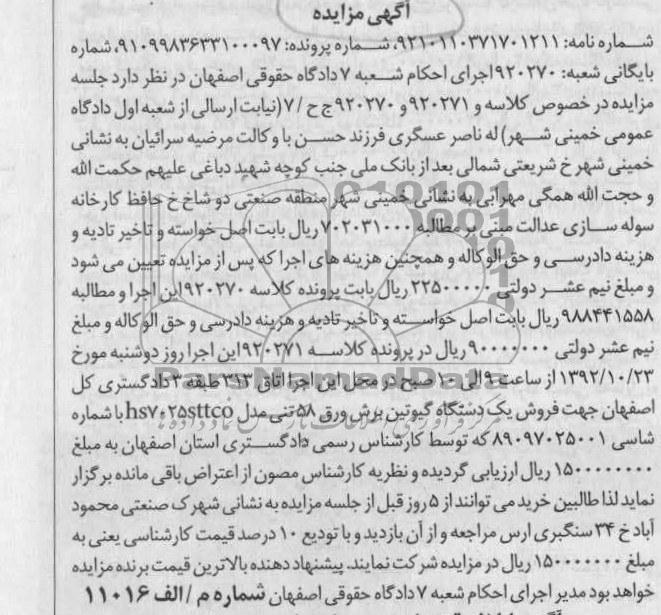 آگهی مزایده
شماره نامه: ۹۲۱۰۱۱۰۳۷۱۷۰۱۲۱۱، شماره پرونده: ۹۱۰۹۹۸۳۶۳۳۱۰۰۰۹۷، شماره
بایگانی شعبه: ۹۲۰۲۷۰ اجرای احکام شعبه ۷ دادگاه حقوقی اصفهان در نظر دارد جلسه
مزایده در خصوص کلاسه و ۹۲۰۲۷۱ و ۹۲۰۲۷۰ ج ح / ۷ (نیابت ارسالی از شعبه اول دادگاه
عمومی خمینی شهر) له ناصر عسگری فرزند حسن با وکالت مرضیه سرائیان به نشانی
خمینی شهر خ شریعتی شمالی بعد از بانک ملی جنب کوچه شهید دباغی علیهم حکمت الله
و حجت الله همگی مهرابی به نشانی خمینی شهر منطقه صنعتی دو شاخ خ حافظ کارخانه
سوله سازی عدالت مبنی بر مطالبه ۷۰۲۰۳۱۰۰۰ ریال بابت اصل خواسته و تاخیر تادیه و
هزینه دادرسی و حق الوکاله و همچنین هزینه های اجرا که پس از مزایده تعیین می شود
و مبلغ نیم عشر دولتی ۲۲۵۰۰۰۰۰ ریال بابت پرونده کلاسه ۹۲۰۲۷۰ این اجرا و مطالبه
۹۸۸۴۴۱۵۵۸ ریال بابت اصل خواسته و تاخیر تادیه و هزینه دادرسی و حق الوکاله و مبلغ
نیم عشر دولتی ۹۰۰۰۰۰۰۰ ریال در پرونده کلاسه ۹۲۰۲۷۱ این اجرا روز دوشنبه مورخ
۱۳۹۲/۱۰/۲۳ از ساعت ۹ الی ۱۰ صبح در محل این اجرا اتاق ۳۱۳ طبقه ۳ دادگستری کل
اصفهان جهت فروش یک دستگاه گیوتین برش ورق ۵۸ تنی مدل hs۷۰۲۵sttco با شماره
شاسی ۸۹۰۹۷۰۲۵۰۰۱ که توسط کارشناس رسمی دادگستری استان اصفهان به مبلغ
۱۵۰۰۰۰۰۰۰۰ ریال ارزیابی گردیده و نظریه کارشناس مصون از اعتراض باقی مانده برگزار
نماید لذا طالبین خرید می توانند از ۵ روز قبل از جلسه مزایده به نشانی شهرک صنعتی محمود
آباد خ ۳۴ سنگبری ارس مراجعه و از آن بازدید و با تودیع ۱۰ درصد قیمت کارشناسی یعنی به
مبلغ ۱۵۰۰۰۰۰۰۰ ریال در مزایده شرکت نمایند. پیشنهاد دهنده بالاترین قیمت برنده مزایده
خواهد بود مدیر اجرای احکام شعبه ۷ دادگاه حقوقی اصفهان شماره م / الف ۱۱۰۱۶
ParsNamadData